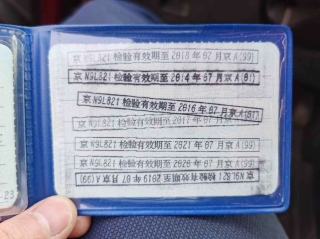 京N9L821检验有效期至2018年07月京A(99)
京N9L821检验有效期至2014年07月京A(01)
京N9L821检验有效期至2016年07月京A(01)
京N9L821检验有效期至2017年07月京A(99)
京N9L821检验有效期至2021年07月京A(99)
京N9L821检验有效期至2020年07月京A(99)
京N9L821检验有效期至2019年07月京A(99)